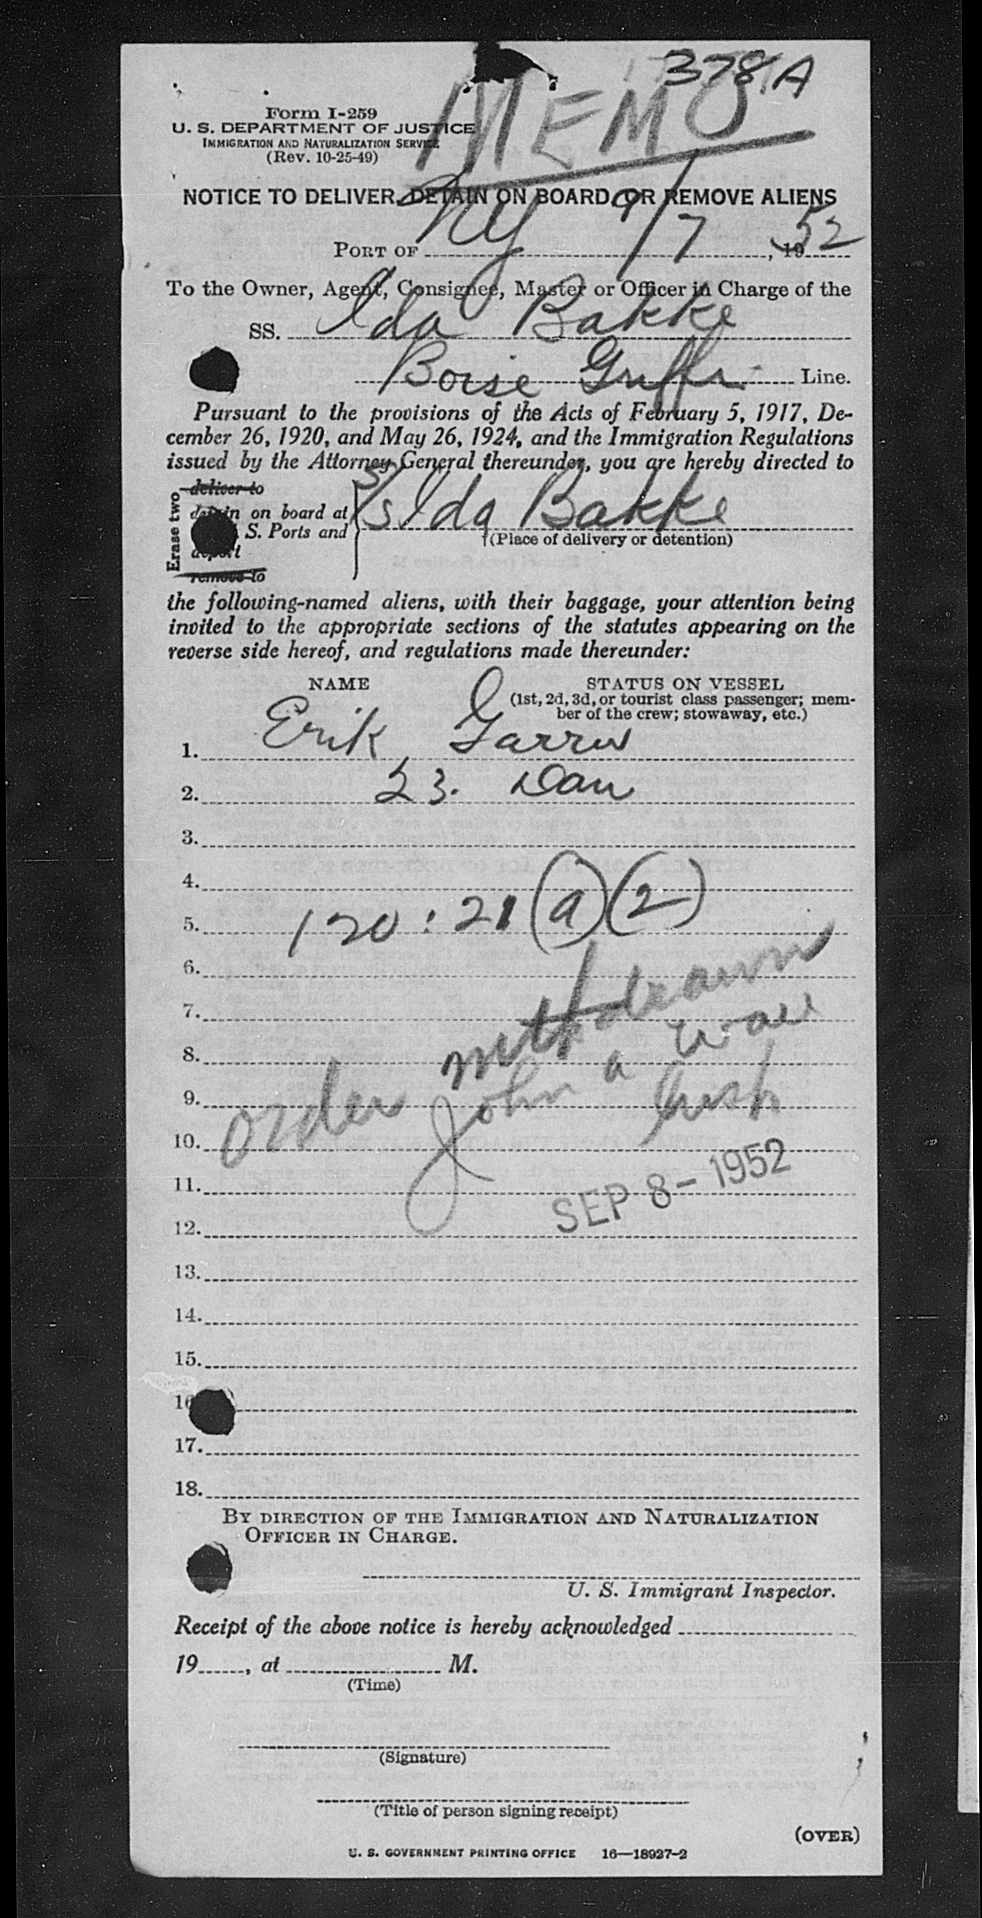 378A
MEMO
Form I-259
U. S. DEPARTMENT OF JUSTICE
IMMIGRATION AND NATURALIZATION SERVICE
(Rev. 10-25-49)
NOTICE TO DELIVER, DETAIN ON BOARD, OR REMOVE ALIENS
PORT OF NY 9/7, 1952
To the Owner, Agent, Consignee, Master or Officer in Charge of the
SS. Ida Bakke
Boise Line.
Pursuant to the provisions of the Acts of February 5, 1917, De-
cember 26, 1920, and May 26, 1924, and the Immigration Regulations
issued by the Attorney General thereunder, you are hereby directed to
Erase two
deliver to
detain on board at
S. Ports and
remove to
S/S Ida Bakke
(Place of delivery or detention)
the following-named aliens, with their baggage, your attention being
invited to the appropriate sections of the statutes appearing on the
reverse side hereof, and regulations made thereunder:
NAME STATUS ON VESSEL
(1st, 2d, 3d, or tourist class passenger; mem-
ber of the crew; stowaway, etc.)
1. Erik
2. 23. Dan
3.
4.
5. 120:21(a)(2)
6.
7.
8.
9.
10.
11.
12.
order withdrawn
John a
SEP 8- 1952
13.
14.
15.
16
17.
18.
BY DIRECTION OF THE IMMIGRATION AND NATURALIZATION
OFFICER IN CHARGE.
U. S. Immigrant Inspector.
Receipt of the above notice is hereby acknowledged
19......, at M.
(Time)
(Signature)
(Title of person signing receipt)
(OVER)
U. S. GOVERNMENT PRINTING OFFICE 16—18927-2